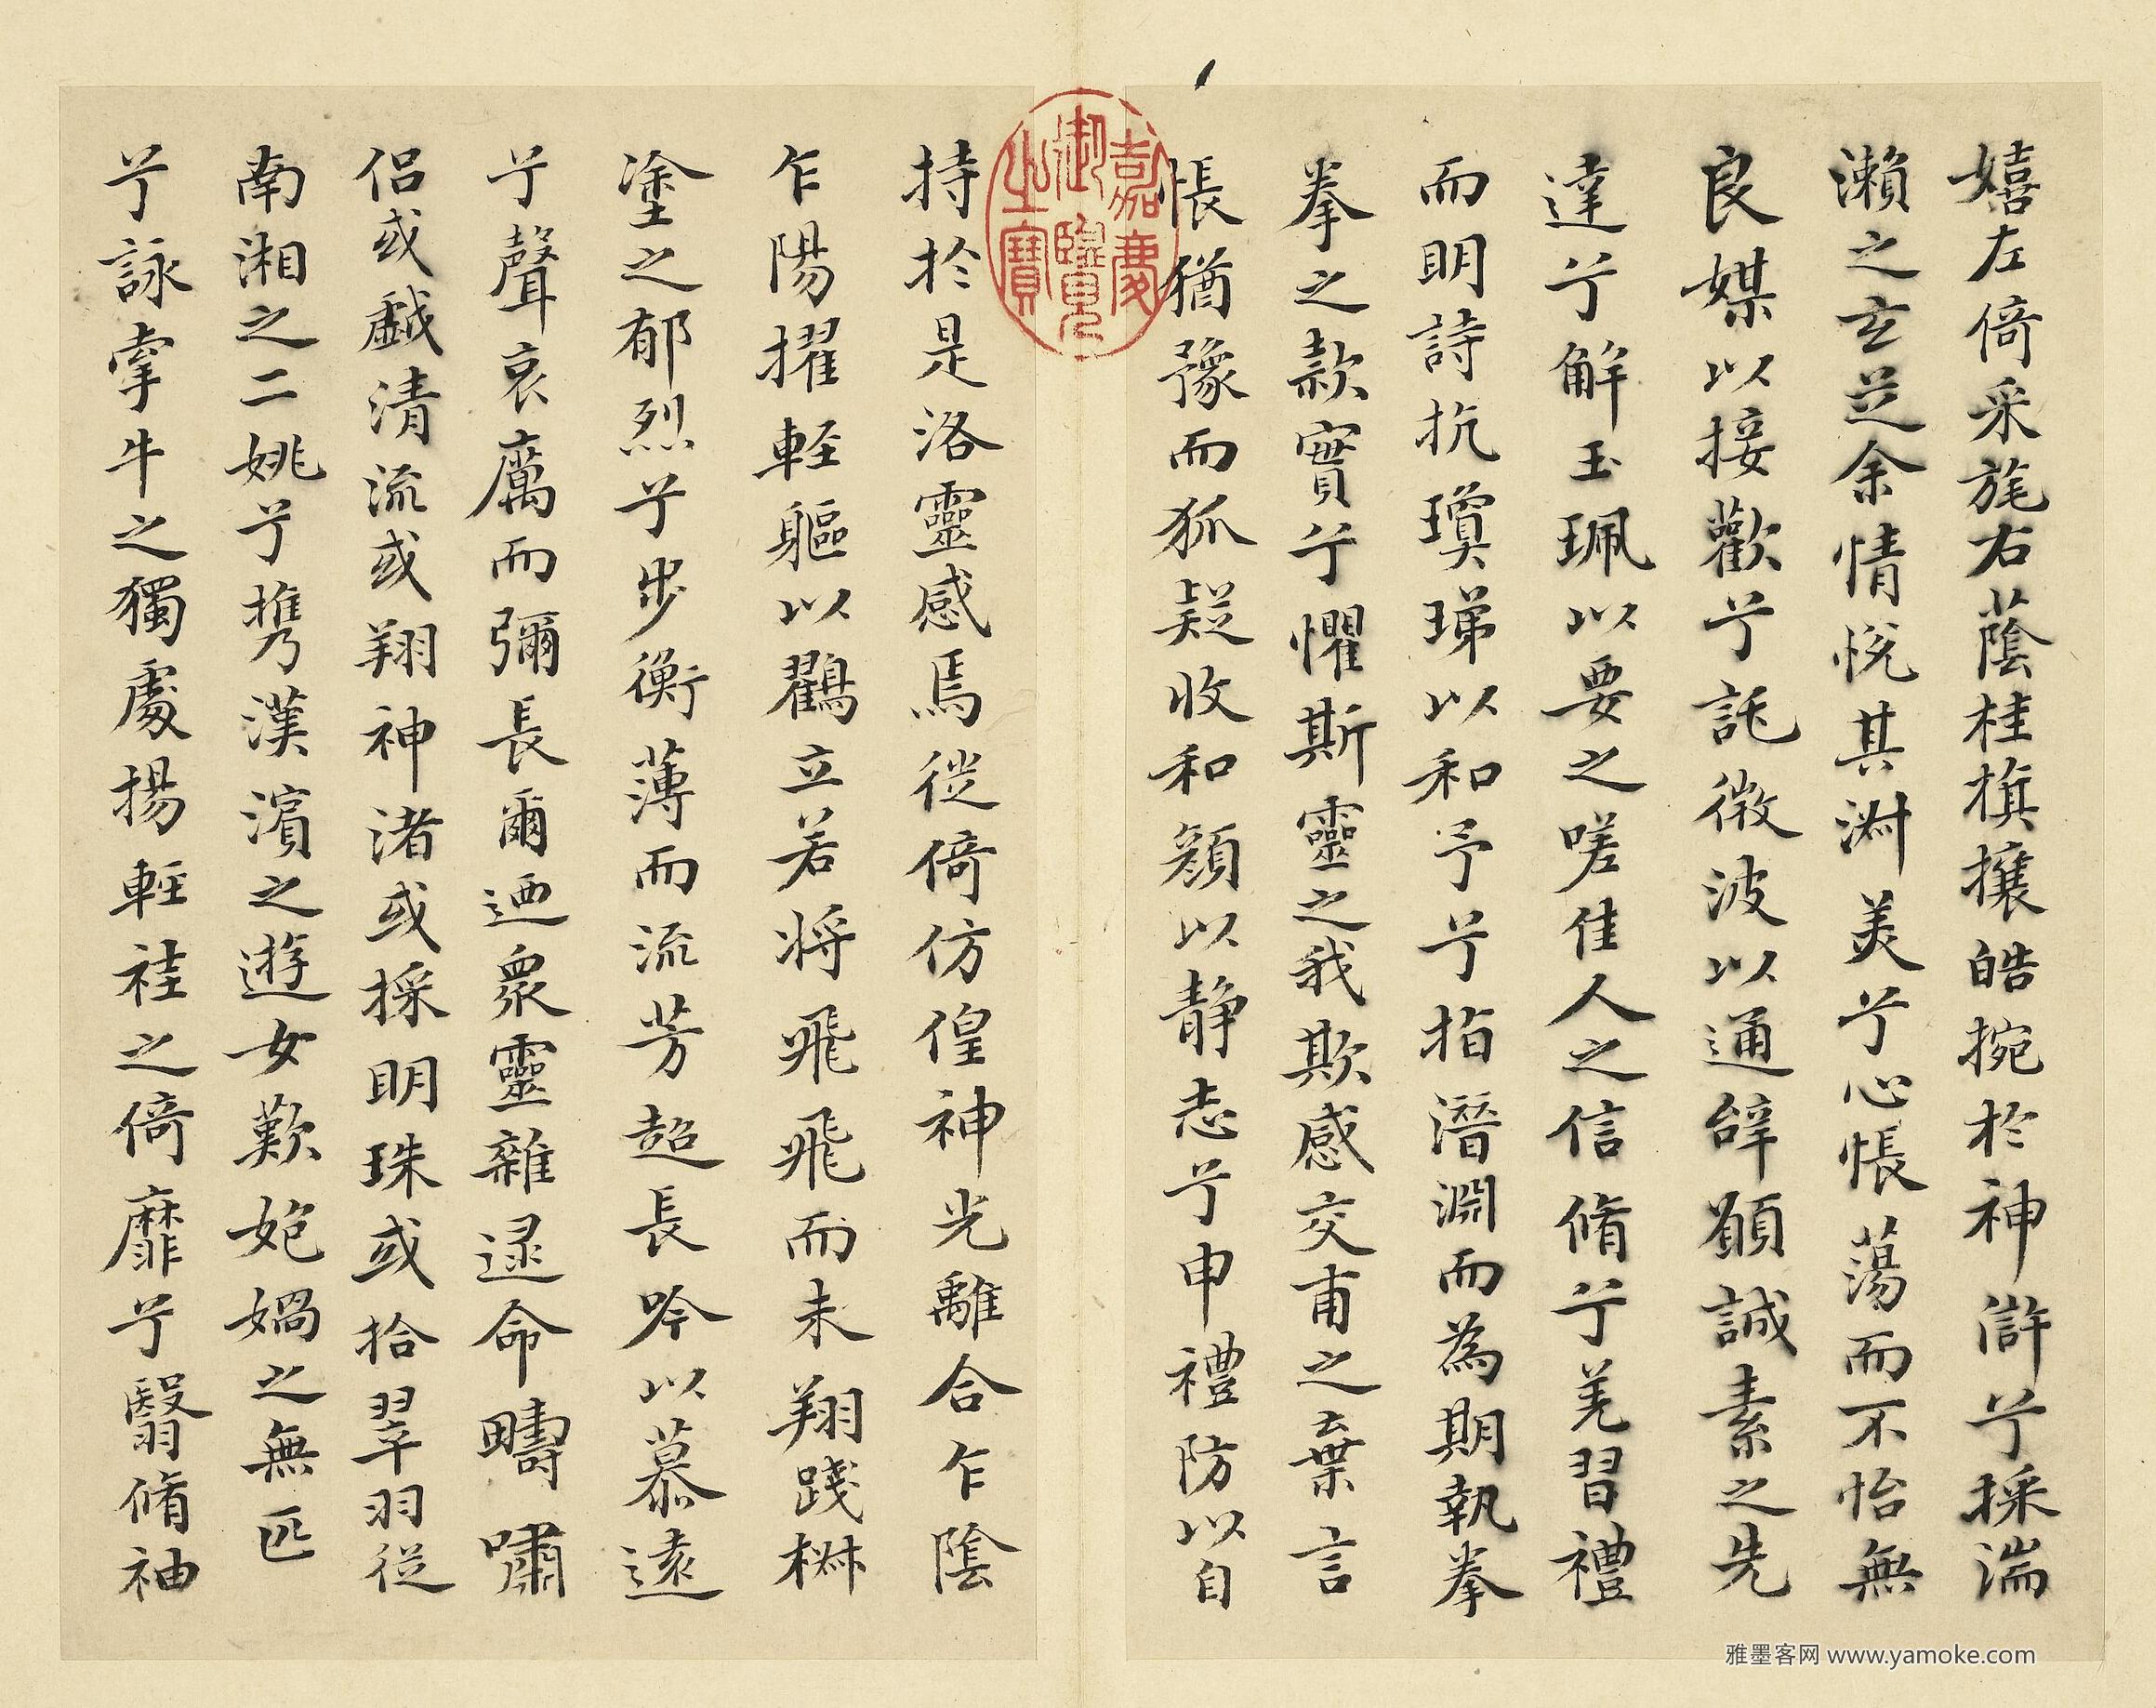 嬉左倚采旄右蔭桂旗攘皓捥於神滸兮採湍
瀨之玄芝余情悅其淋美兮心悵蕩而不怡無
良媒以接歡兮託微波以通辭願誠素之先
達兮解玉珮以要之嗟佳人之信脩兮羌習禮
而明詩抗瓊珶以和予兮指潛淵而為期執拳
拳之款實兮懼斯靈之我欺感交甫之棄言
悵猶豫而狐疑收和顏以静志兮申禮防以自
持於是洛靈感焉徙倚仿偟神光離合乍陰
乍陽擢軽軀以鸖立若將飛飛而未翔踐椒
塗之郁烈兮步衡薄而流芳超長吟以慕遠
兮聲哀厲而彌長爾迺衆靈雜逯命疇嘯
侶或戯清流或翔神渚或採明珠或拾翠羽從
南湘之二姚兮携漢濱之遊女歎妑媧之無匹
兮詠牽牛之獨處揚軽袿之倚靡兮翳脩袖
嘉慶御覽之寶
雅墨客网 www.yamoke.com